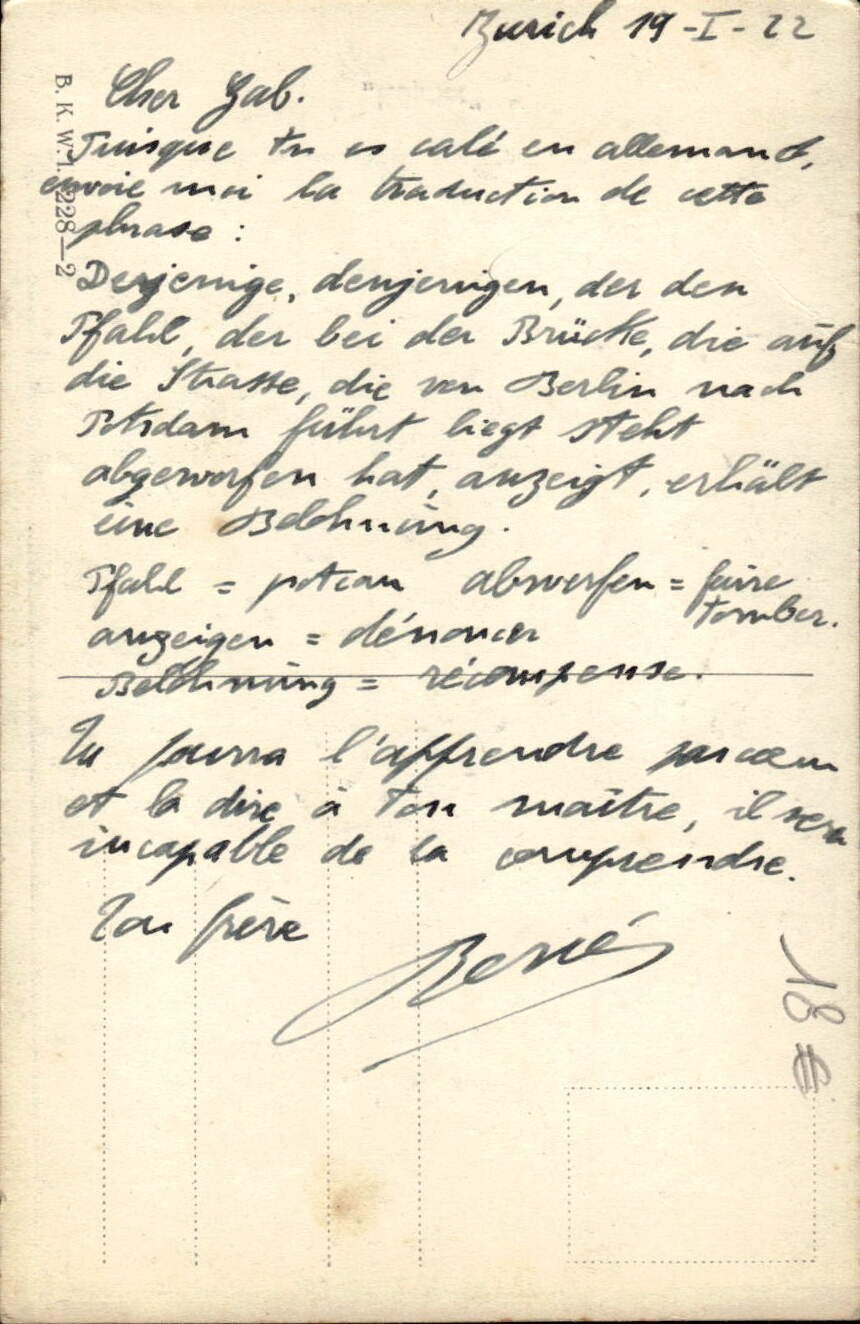 Zurich 19-I-22
B. K. W. I. 228—2
Cher Gab.
Puisque tu es calé en allemand,
envoie moi la traduction de cette
phrase :
Derjenige, denjenigen, der den
Pfahl, der bei der Brücke, die auf
die Strasse, die von Berlin nach
Potsdam führt liegt steht
abgeworfen hat, anzeigt, erhält
eine Belohnung.
Pfahl = poteau abwerfen = faire
tomber.
anzeigen = dénoncer
Belohnung = récompense.
Tu pourra l'apprendre par cœur
et la dire à ton maître, il sera
incapable de la comprendre.
Ton frère
René
18 €